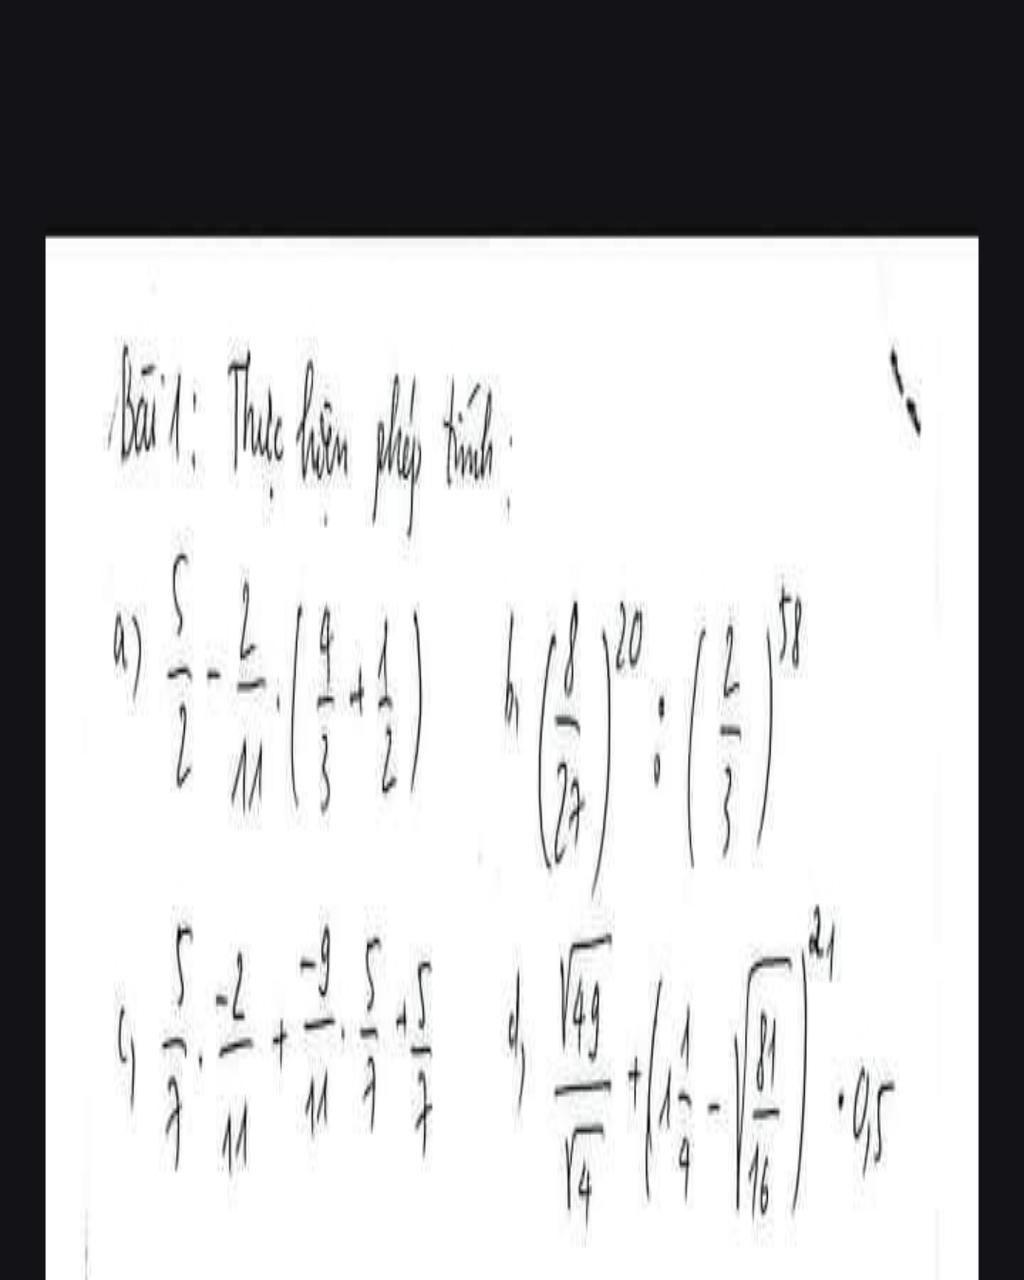 Bài 1: Thực hiện phép tính:
a) 5/2 - 2/11 . (4/3 + 1/2) b, (8/27)^20 : (2/3)^58
c, 5/7 . -2/11 + -9/11 . 5/7 + 5/7 d, √49/√4 + (1 1/4 - √(81/16))^21 . 0,5